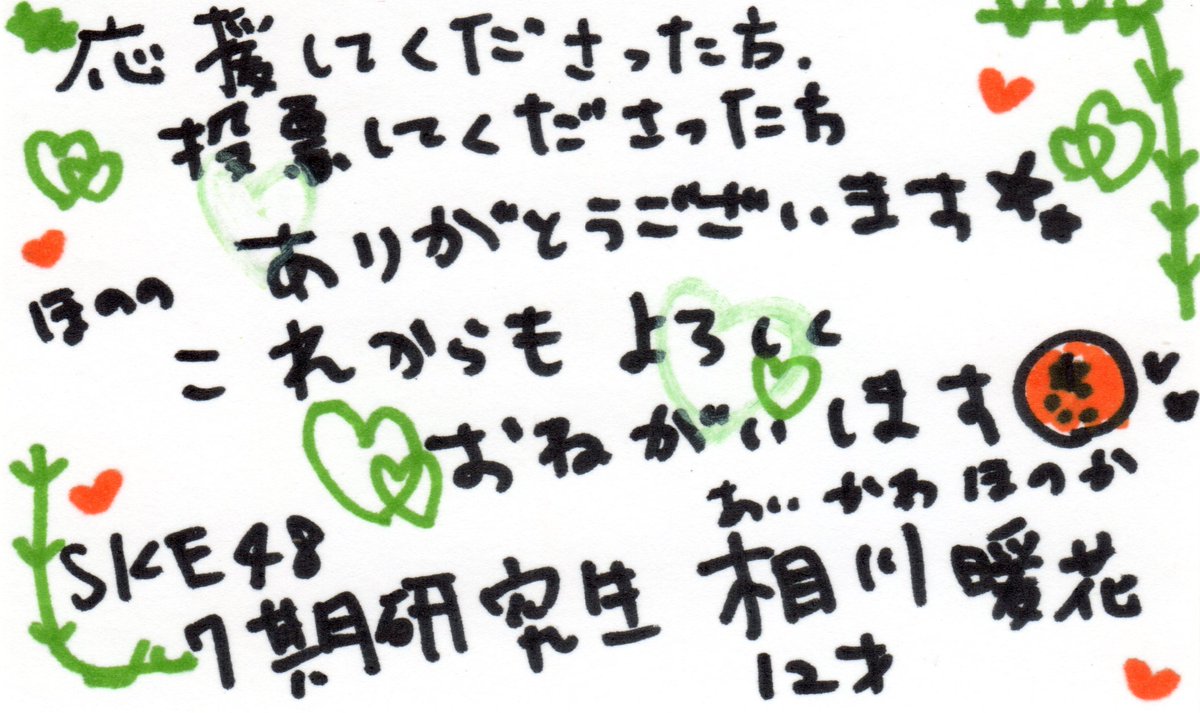 応援してくださったち.
投票してくださったち
ありがとうございます
ほのの
これからもよろしく
おねがいします
あいかわほのか
SKE48
7期研究生 相川暖花
12才